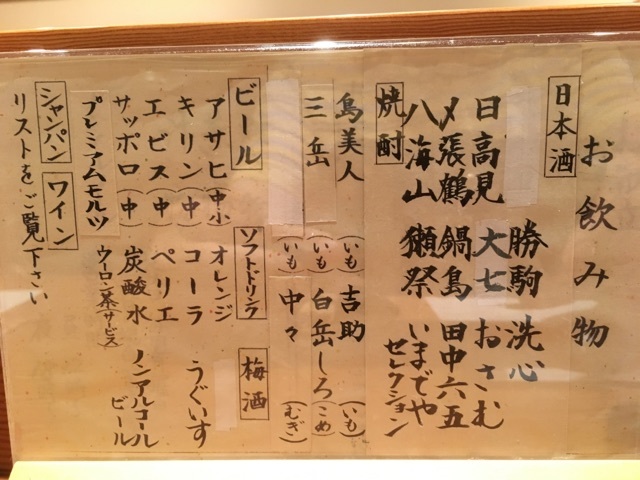 お飲み物
日本酒
勝駒 洗心
日高見 大七 おさむ
〆張鶴 鍋島 田中六五
八海山 獺祭 いまでや
セレクション
焼酎
島美人(いも) 吉助(いも)
三岳(いも) 白岳しろ(こめ)
中々(むぎ)
ビール
アサヒ(中小)
キリン(中)
エビス(中)
サッポロ(中)
プレミアムモルツ
ソフトドリンク
オレンジ
コーラ
ペリエ
炭酸水
ウーロン茶(サービス)
梅酒
うぐいす
ノンアルコール
ビール
シャンパン ワイン
リストをご覧下さい